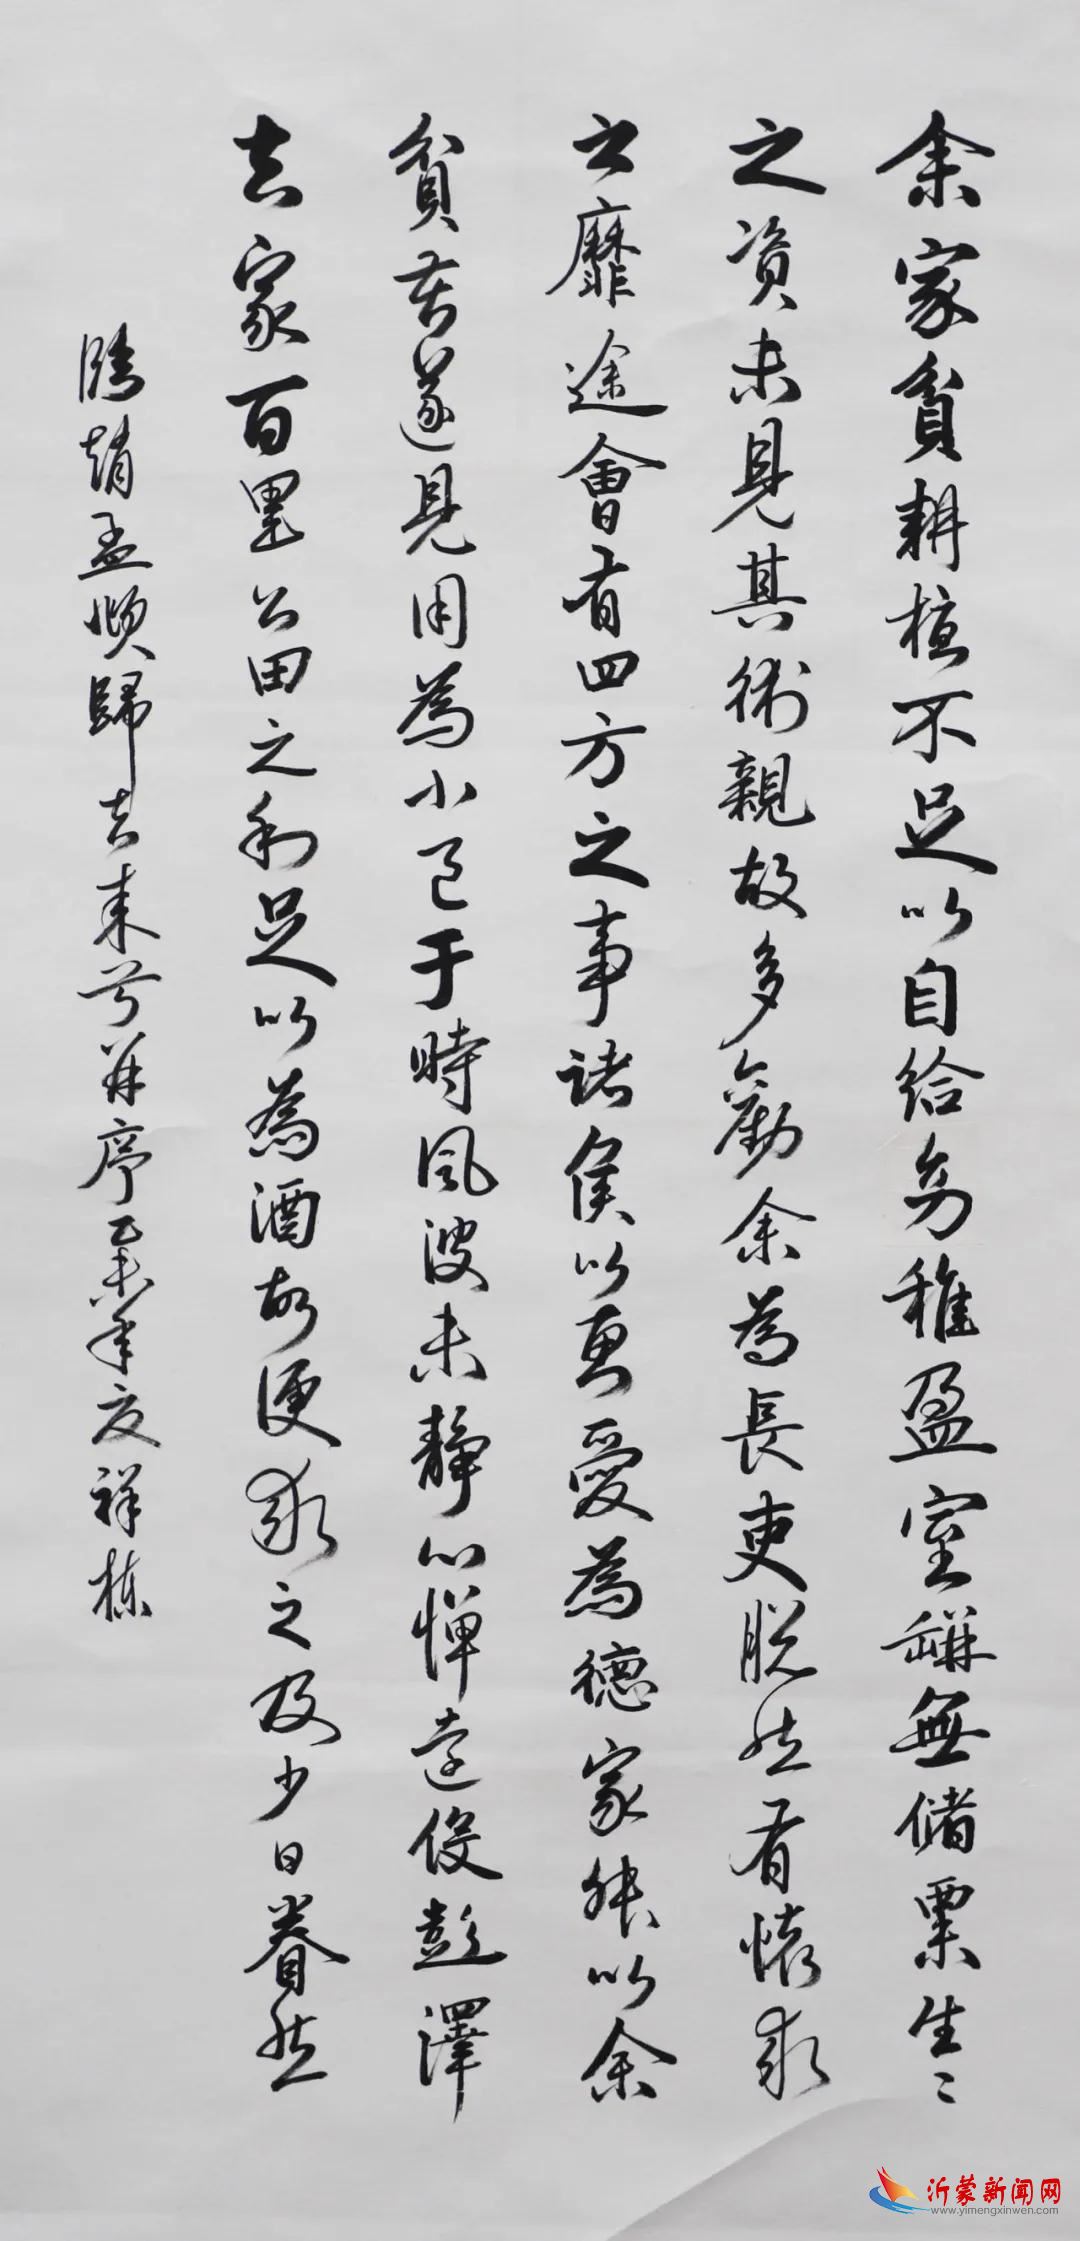 余家貧耕植不足以自給幼稚盈室缾無儲粟生〻
之資未見其術親故多勸余為長吏脫然有懷求
之靡途會有四方之事諸侯以惠愛為德家叔以余
貧苦遂見用為小邑于時風波未靜心憚遠役彭澤
去家百里公田之利足以為酒故便求之及少日眷然
臨趙孟頫歸去來兮并序乙未年夏祥栋
沂蒙新闻网
www.yimengxinwen.com